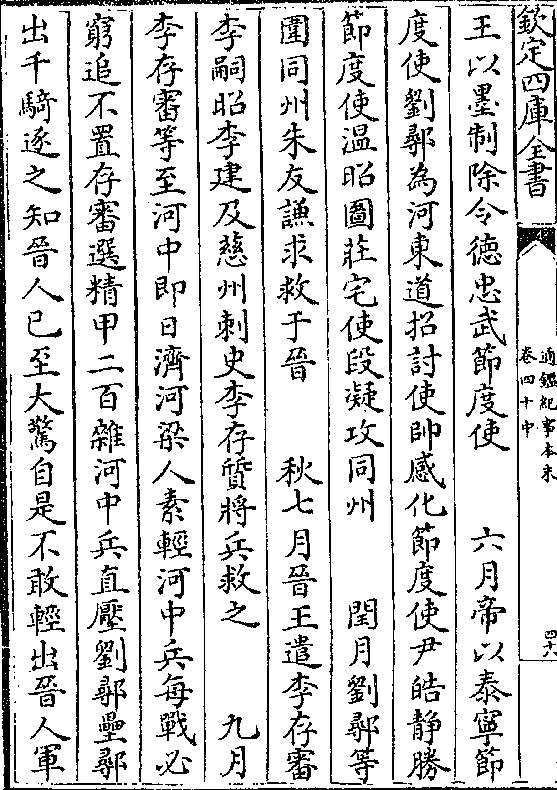 欽定四庫全書
通鑑紀事本末
卷四十中
四六
王以墨制除令徳忠武節度使　六月帝以泰寧節
度使劉鄩為河東道招討使帥感化節度使尹皓静勝
節度使温昭圖莊宅使段凝攻同州　閏月劉鄩等
圍同州朱友謙求救于晉　秋七月晉王遣李存審
李嗣昭李建及慈州刺史李存質將兵救之　九月
李存審等至河中即日濟河梁人素輕河中兵每戰必
窮追不置存審選精甲二百雜河中兵直壓劉鄩壘鄩
出千騎逐之知晉人已至大驚自是不敢輕出晉人軍